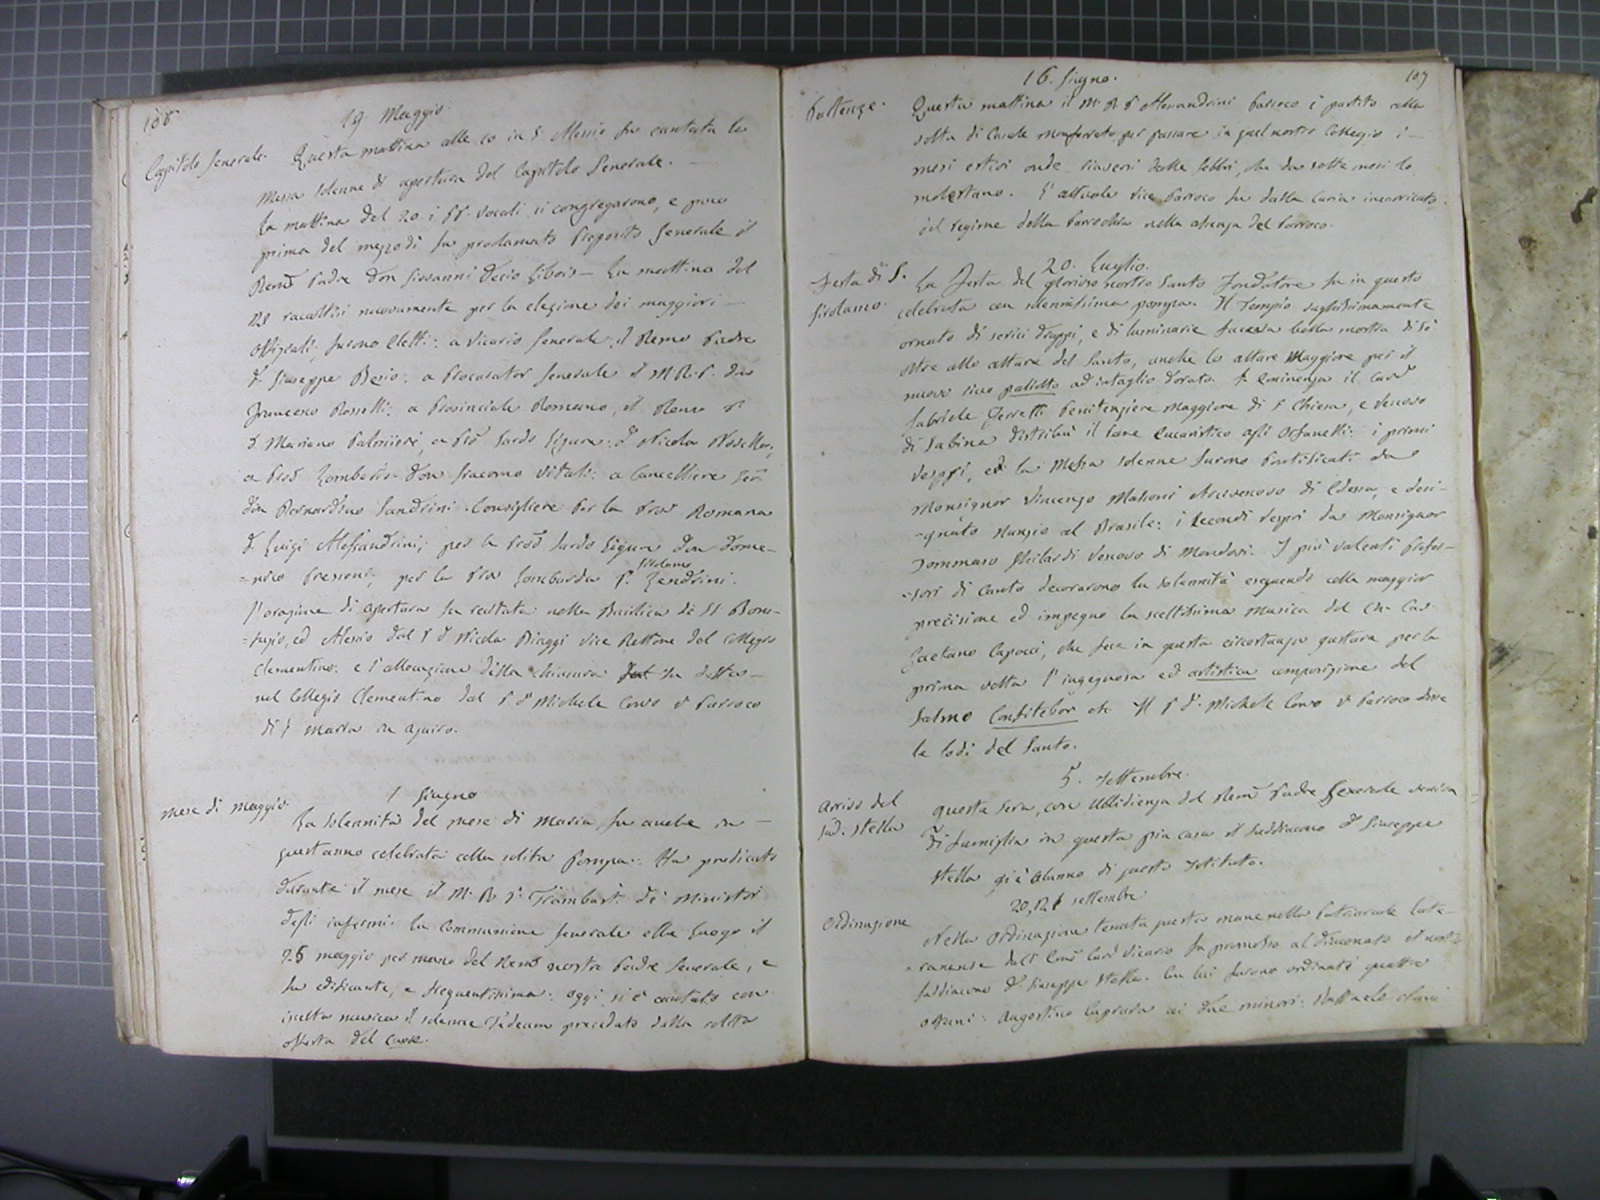 106
19 Maggio.
Capitolo Generale.
Questa mattina alle 10 in S. Alessio fu cantata la
Messa solenne di apertura del Capitolo Generale. —
La mattina del 20. i PP. Vocali si congregarono, e poco
prima del mezzodì fu proclamato Preposito Generale il
Rmo Padre Don Giovanni Decio Libois — La mattina del
23 raccoltisi nuovamente per la elezione dei maggiori —
Offiziali, furono eletti: a Vicario Generale, il Rmo Padre
D. Giuseppe Besio: a Procurator Generale il M. R. P. Don
Francesco Rossetti: a Provinciale Romano, il Rmo P.
D. Mariano Palmieri, a Prõ Sardo Ligure: D. Nicola
a Prov Lombardo Don Giacomo Vitali: a Cancelliere Gen
Don Bernardino Sandrini. Consigliere per la Prov Romana
D. Luigi Alessandrini; per la Prov Sardo Ligure Don Dome-
-nico Pressoni; per la Prov Lombarda P. Girolamo Zendrini.
L'orazione di apertura fu recitata nella Basilica de SS. Boni-
-fazio, ed Alessio dal P. D. Nicola Biaggi Vice Rettore del Collegio
Clementino: e l'allocuzione della chiusura fu detta —
nel Collegio Clementino dal P. D. Michele Corvo V. Parroco
di S. Maria in Aquiro.
1 Giugno
mese di Maggio.
La solennità del mese di Maria, fu anche in —
quest'anno celebrata colla solita Pompa. Ha predicato
durante il mese il M. R. P. de' Ministri
degli infermi. La Communione Generale ebbe luogo il
25 maggio per mano del Rmo nostro Padre Generale, e
fu edificante, e frequentissima: oggi si è cantato con
scelta musica il solenne Tedeum preceduto dalla solita
offerta del Cuore.
107
16. Giugno.
Partenze.
Questa mattina il M. R. P. Alessandrini Parroco è partito alla
volta di Casale Monferrato per passare in quel nostro Collegio i —
mesi estivi onde riaversi dalle febbri, che da sette mesi lo
molestano. L'attuale vice Parroco fu dalla Curia incaricato
del regime della Parrochia nella assenza del Parroco.
20. Luglio.
Festa di S.
Girolamo.
La Festa del glorioso nostro Santo Fondatore fu in questo
celebrata con solennissima pompa. Il Tempio vaghissimamente
ornato di serici drappi, e di luminarie faceva bella mostra di sè
oltre allo altare del Santo, anche lo altare Maggiore per il
nuovo ricco paliotto ad intaglio dorato. S. Eminenza il Card
Gabriele Ferretti Penitenziere Maggiore di S. Chiesa, e Vescovo
di Sabina distribuì il Pane Eucaristico agli Orfanelli: i primi
Vespri, ed la Messa solenne furono Pontificati da
Monsignor Vincenzo Massoni Arcivescovo di Edessa, e desi-
-gnato Nunzio al Brasile: i secondi Vespri da Monsignor
Tommaso Ghilardi Vescovo di Mondovi. I più valenti Profes-
-sori di Canto decorarono la solennità eseguendo colla maggior
precisione ed impegno la sceltissima Musica del Ch. Cav.
Gaetano Capocci, che fece in questa circostanza gustare per la
prima volta l'ingegnosa ed artistica composizione del
Salmo Confitebor etc. Il P. D. Michele Corvo V. Parroco disse
le lodi del Santo.
5. Settembre.
Arrivo del
Sud. Stella
Questa sera, con Ubbidienza del Rmo Padre Generale veniva
di famiglia in questa pia casa il Suddiacono D. Giuseppe
Stella già Alunno di questo Istituto.
20, settembre
Ordinazione
Nella Ordinazione tenuta questa mane nella Patriarcale Late-
-ranense dall'Emo Card Vicario fu promosso al Diaconato il nostro
Suddiacono D. Giuseppe Stella. Con lui furono ordinati quattro
orfani: Augostino Caprara ai due minori: Raffaele